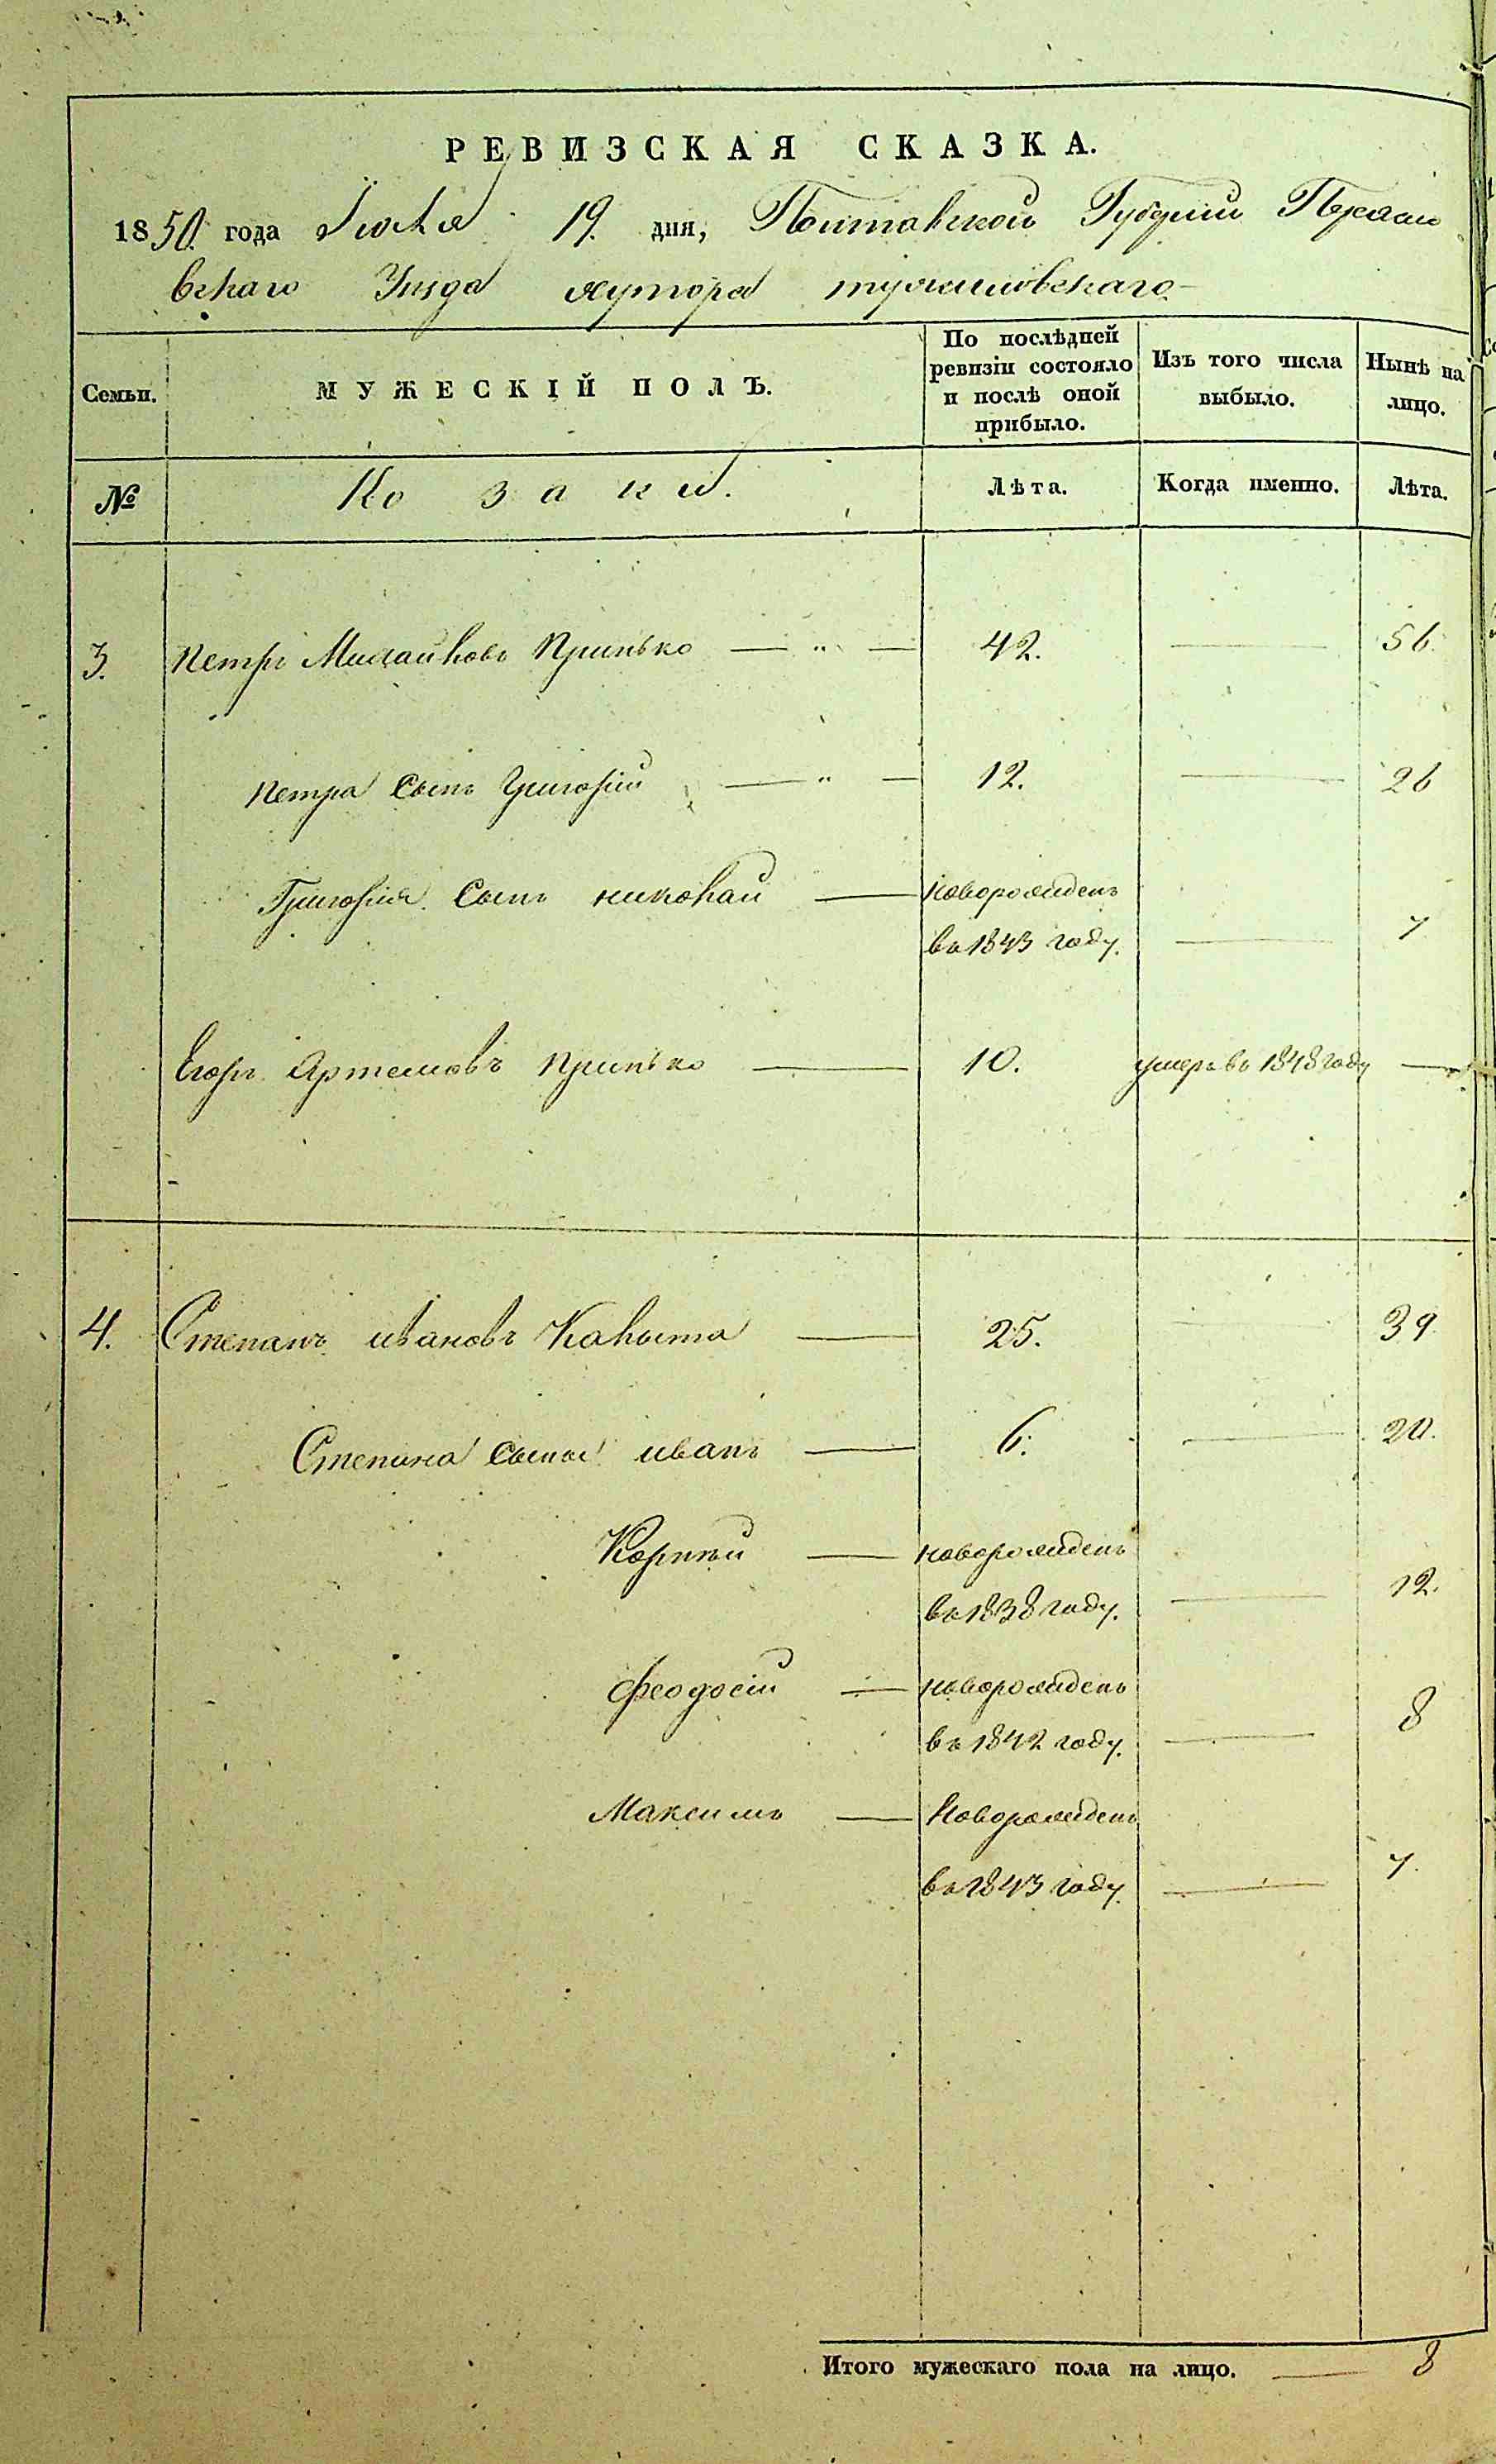 РЕВИЗСКАЯ СКАЗКА.
1850 года Іюля 19. дня, Полтавской Губерніи
вскаго Уѣзда хутора
Семьи.
МУЖЕСКІЙ ПОЛЪ.
По послѣдней ревизіи состояло и послѣ оной прибыло.
Изъ того числа выбыло.
Нынѣ на лицо.
№
Козаки.
Лѣта.
Когда именно.
Лѣта.
3. Петръ Михайловъ Припько — „ — 42. — 56.
Петра сынъ Григорій — „ — 12. — 26
Григорія сынъ николай — новорожденъ
въ 1843 году. — 7
Егоръ Артемовъ припько — 10. умеръ въ 1848 году —
4. Степанъ ивановъ Калыта — 25. — 39.
Степана сыны иванъ — 6. — 20.
Корнѣй — новорожденъ
въ 1838 году. — 12.
Феодосій — новорожденъ
въ 1842 году. — 8
Максимъ — Новорожденъ
въ 1843 году — 7.
Итого мужескаго пола на лицо. — 8